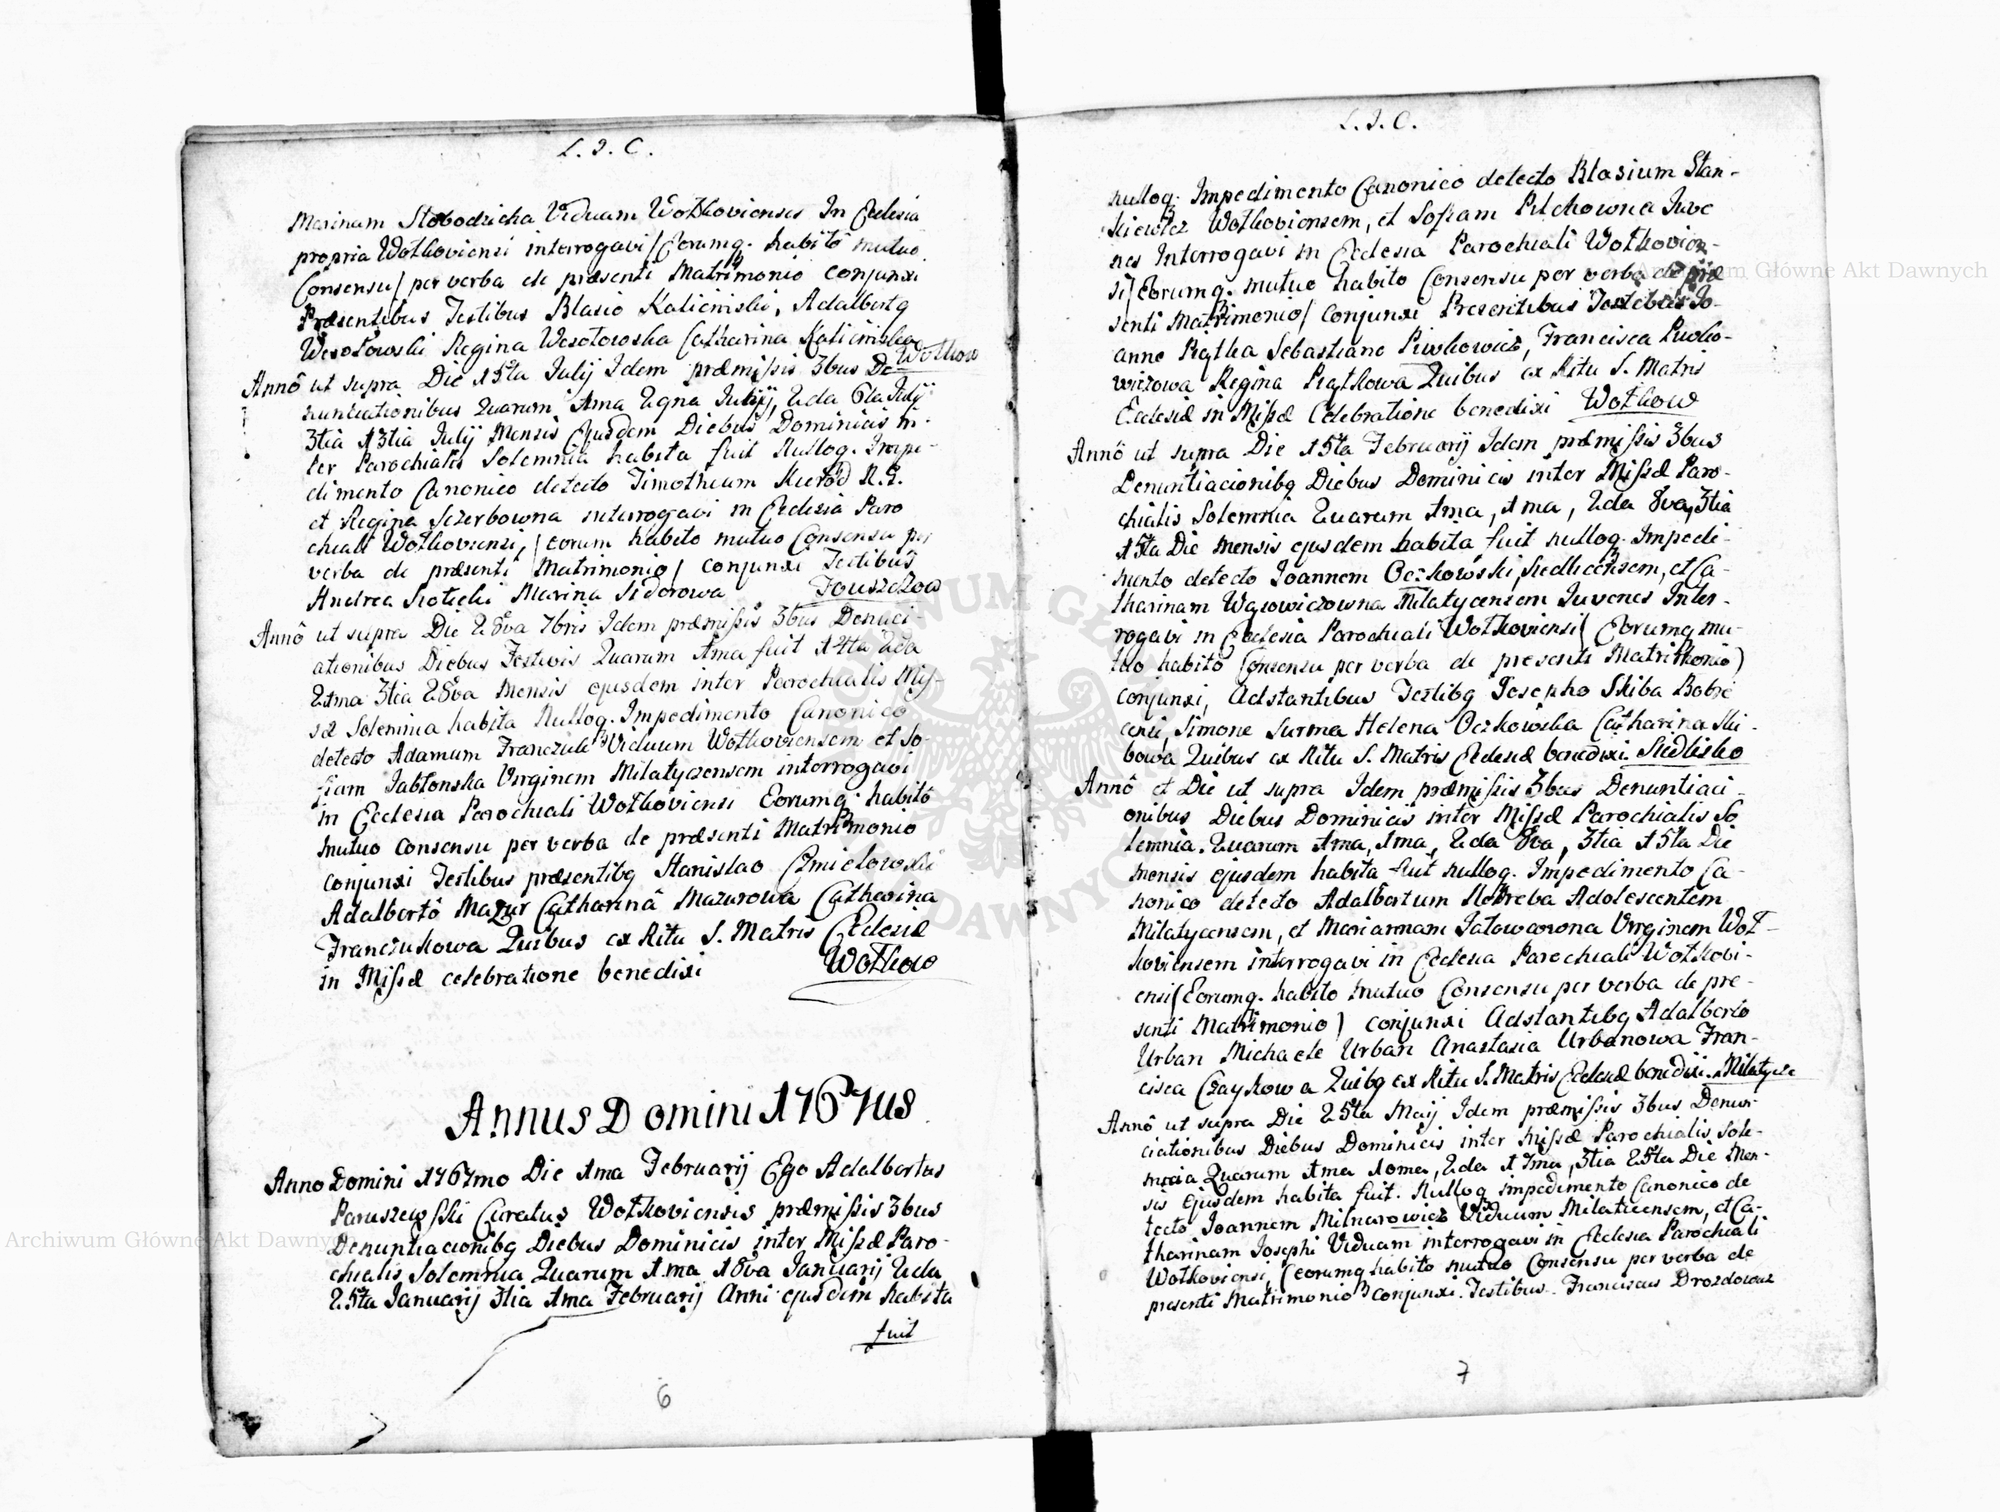 L. I. C.
Marinam Słobodzicha Viduam Wołkoviensis In Eclesia
propria Wołkoviensi interrogavi / Eorumq. habitô mutuo
Consensu / per verba de præsenti Matrimonio conjunxi
Præsentibus Testibus Blasio Kaliciński, Adalbertq
Wesołowski Regina Wesołowska Catharina Kalicińska
Wołkow
Annô ut supra Die 15ta Julij Idem præmissis 3bus De-
nuntiationibus Quarum 1ma Julij, 2da 6ta Julij
3tia 13tia Julij Mensis Ejusdem Diebus Dominicis in-
ter Parochialis Solemnia habita fuit Nulloq. Impe-
dimento Canonico detecto Timotheum
et Regina Szczerbowna interrogavi in Eclesia Paro
chiali Wołkoviensi, / eorum habito mutuo Consensu per
verba de præsenti Matrimonio / conjunxi Testibus
Andrea Marina Sidorowa
Annô ut supra Die 28va 7bris Idem præmissis 3bus Denuci-
ationibus Diebus Festivis Quarum 1ma fuit 14ta 2da
21ma 3tia 28va Mensis ejusdem inter Parochialis Mis-
sæ Solemnia habita Nulloq. Impedimento Canonico
detecto Adamum Franczuk Viduum Wołkoviensem et So-
fiam Jabłonska Virginem Milatyczensem interrogavi
in Eclesia Parochiali Wołkoviensi Eorumq. habitô
mutuo consensu per verba de præsenti Matrimonio
conjunxi Testibus præsentibq Stanislao Czmielowski
Adalbertô Mazur Catharinâ Mazurowa Catherina
Franczukowa Quibus ex Ritu S. Matris Eclesiæ
in Missæ celebratione benedixi Wołkow
Annus Domini 1767mus
Anno Domini 1767mo Die 1ma Februarij Ego Adalbertus
Paruszewsski Curatus Wołkoviensis præmissis 3bus
Denuntiacionibq Diebus Dominicis inter Missæ Paro-
chialis Solemnia Quarum 1ma 18va Januarij 2da
25ta Januarij 3tia 1ma Februarij Anni ejusdem habita
fuit
6
L. I. C.
nulloq. Impedimento Canonico detecto Blasium Stan-
kiewicz Wołkoviensem, et Sofiam Pilchowna Juve
nes Interrogavi in Eclesia Parochiali Wołkovien-
si / Eorumq. mutuo habito Consensu per verba de præ
senti Matrimonio / conjunxi Presentibus Testibus Jo-
anne Piątka Sebastiano Piwkowicz, Francisca Piwko-
wiczowa Regina Piątkowa Quibus ex Ritu S. Matris
Eclesiæ in Missæ Celebratione benedixi Wołkow
Annô ut supra Die 15ta Februarij Idem præmissis 3bus
Denuntiacionibq Diebus Dominicis inter Missæ Paro-
chialis Solemnia Quarum 1ma, 1ma, 2da 8va, 3tia
15ta Die mensis ejusdem habita fuit nulloq. Impedi-
mento detecto Joannem Oczkowski Siedliscensem, et Ca-
tharinam Wąsowiczowna Milatycensem Juvenes Inter-
rogavi in Eclesia Parochiali Wołkoviensi / Eorumq mu-
tuo habitô Consensu per verba de presenti Matrimonio)
conjunxi, Adstantibus Testibq Josepho Skiba Bobre
Simone Surma Helena Oczkowska Catharina Ski-
bowa Quibus ex Ritu S. Matris Eclesiæ benedixi. Siedlisko
Annô et Die ut supra Idem præmissis 3bus Denuntiaci-
onibus Diebus Dominicis inter Missæ Parochialis So
lemnia. Quarum 1ma, 1ma, 2da 8va, 3tia 15ta Die
mensis ejusdem habita fuit nulloq. Impedimento Ca-
nonico detecto Adalbertum Adolescentem
Milatycensem, et Mariannam Virginem Woł-
koviensem interrogavi in Eclesia Parochiali Wołkovi-
ensi / Eorumq. habito mutuo Consensu per verba de pre-
senti Matrimonio) conjunxi Adstantibq Adalberto
Urban Michaele Urban Anastasia Urbanowa Fran-
cisca Czaykowa Quibq ex Ritu S. Matris Eclesiæ benedixi. Milatycze
Annô ut supra Die 25ta Maij Idem præmissis 3bus Denun-
ciationibus Diebus Dominicis inter Missæ Parochialis Sole-
mnia Quarum 1ma 10ma, 2da 17ma, 3tia 25ta Die Men-
sis Ejusdem habita fuit. Nulloq impedimento Canonico de
tecto Joannem Milnarowicz Viduum Milaticensem, et Ca-
tharinam Josephi Viduam interrogavi in Eclesia Parochiali
Wołkoviensi, (eorumq habito mutuo Consensu per verba de
presenti Matrimonio) conjunxi. Testibus. Franciscus Drozdowicz
7
Archiwum Główne Akt Dawnych
Archiwum Główne Akt Dawnych
ARCHIWUM GŁÓWNE AKT DAWNYCH